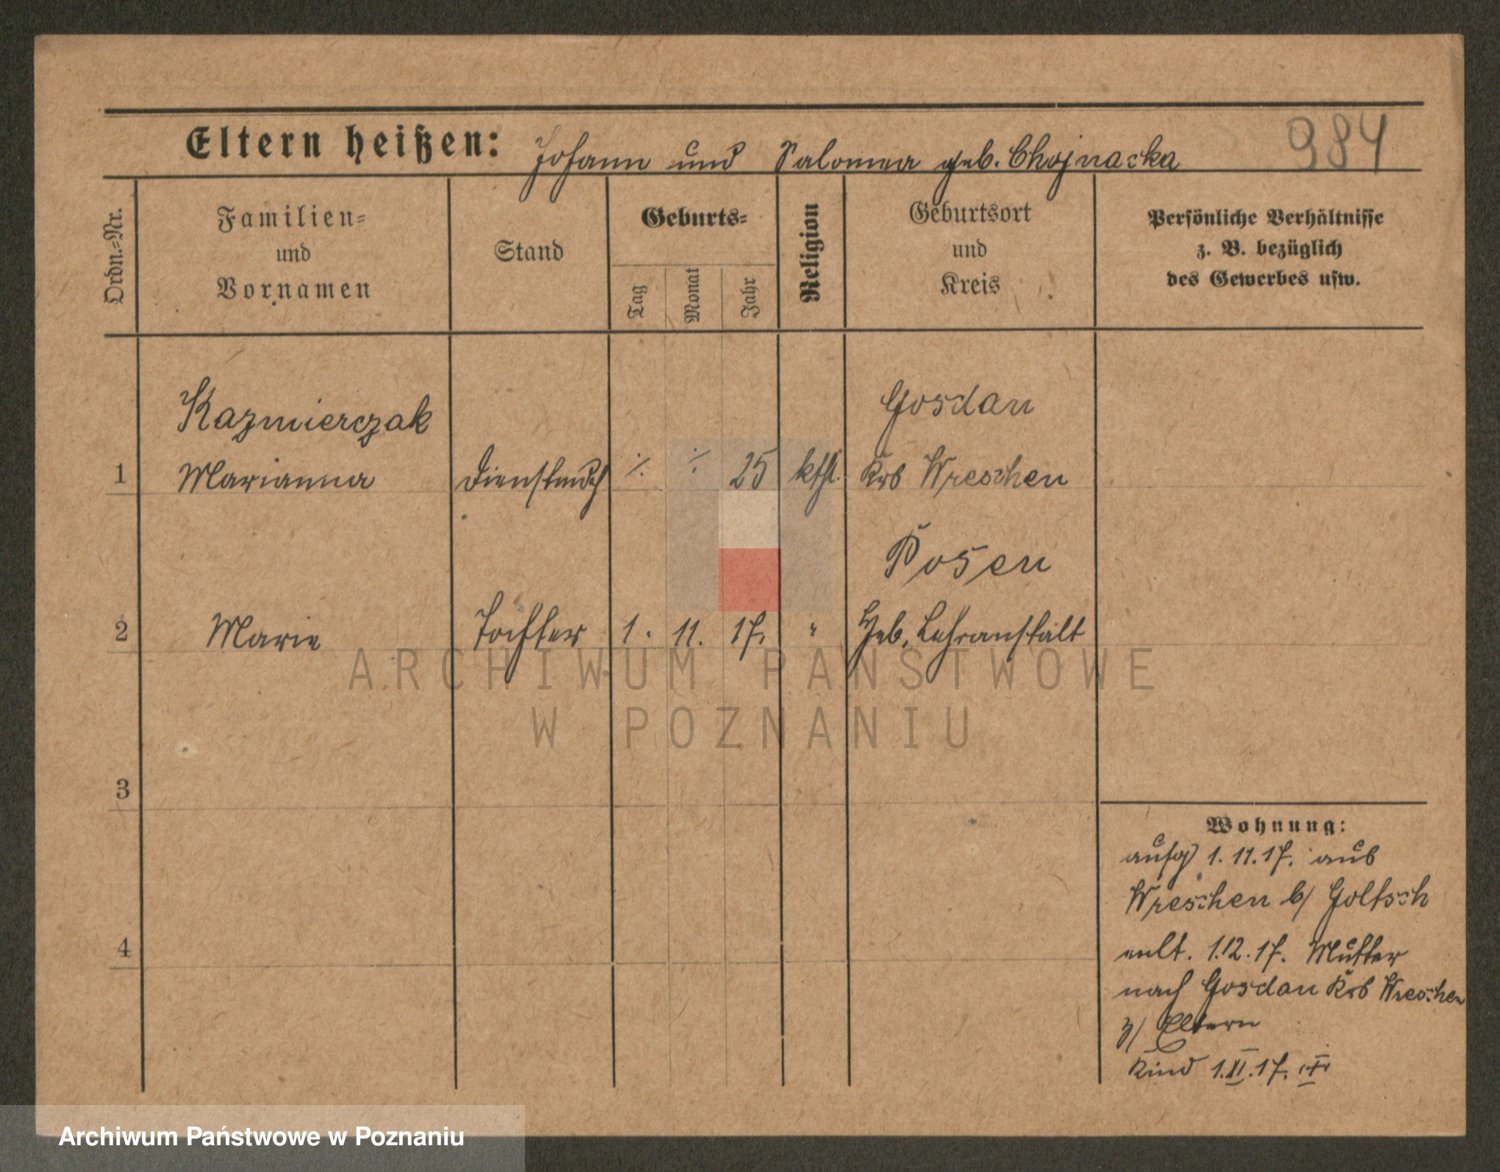 984
Eltern heißen: Johann und Salomea geb. Chojnacka
Ordn.-Nr.
Familien-
und
Vornamen
Stand
Geburts-
Tag
Monat
Jahr
Religion
Geburtsort
und
Kreis
Persönliche Verhältnisse
z. B. bezüglich
des Gewerbes usw.
Kazmierczak
Gosdau
1 Marianna Dienstmdch ·/. ·/. 25 kthl. Krs Wreschen
Posen
2 Marie Tochter 1. 11. 17. " Heb. Lehranstalt
3
4
Wohnung:
aufg 1.11.17. aus
Wreschen b/ Goltsch
entl. 1.12.17. Mutter
nach Gosdau Krs Wreschen
z/ Eltern
Kind 1.XI.17. +
ARCHIWUM PAŃSTWOWE
W POZNANIU
Archiwum Państwowe w Poznaniu